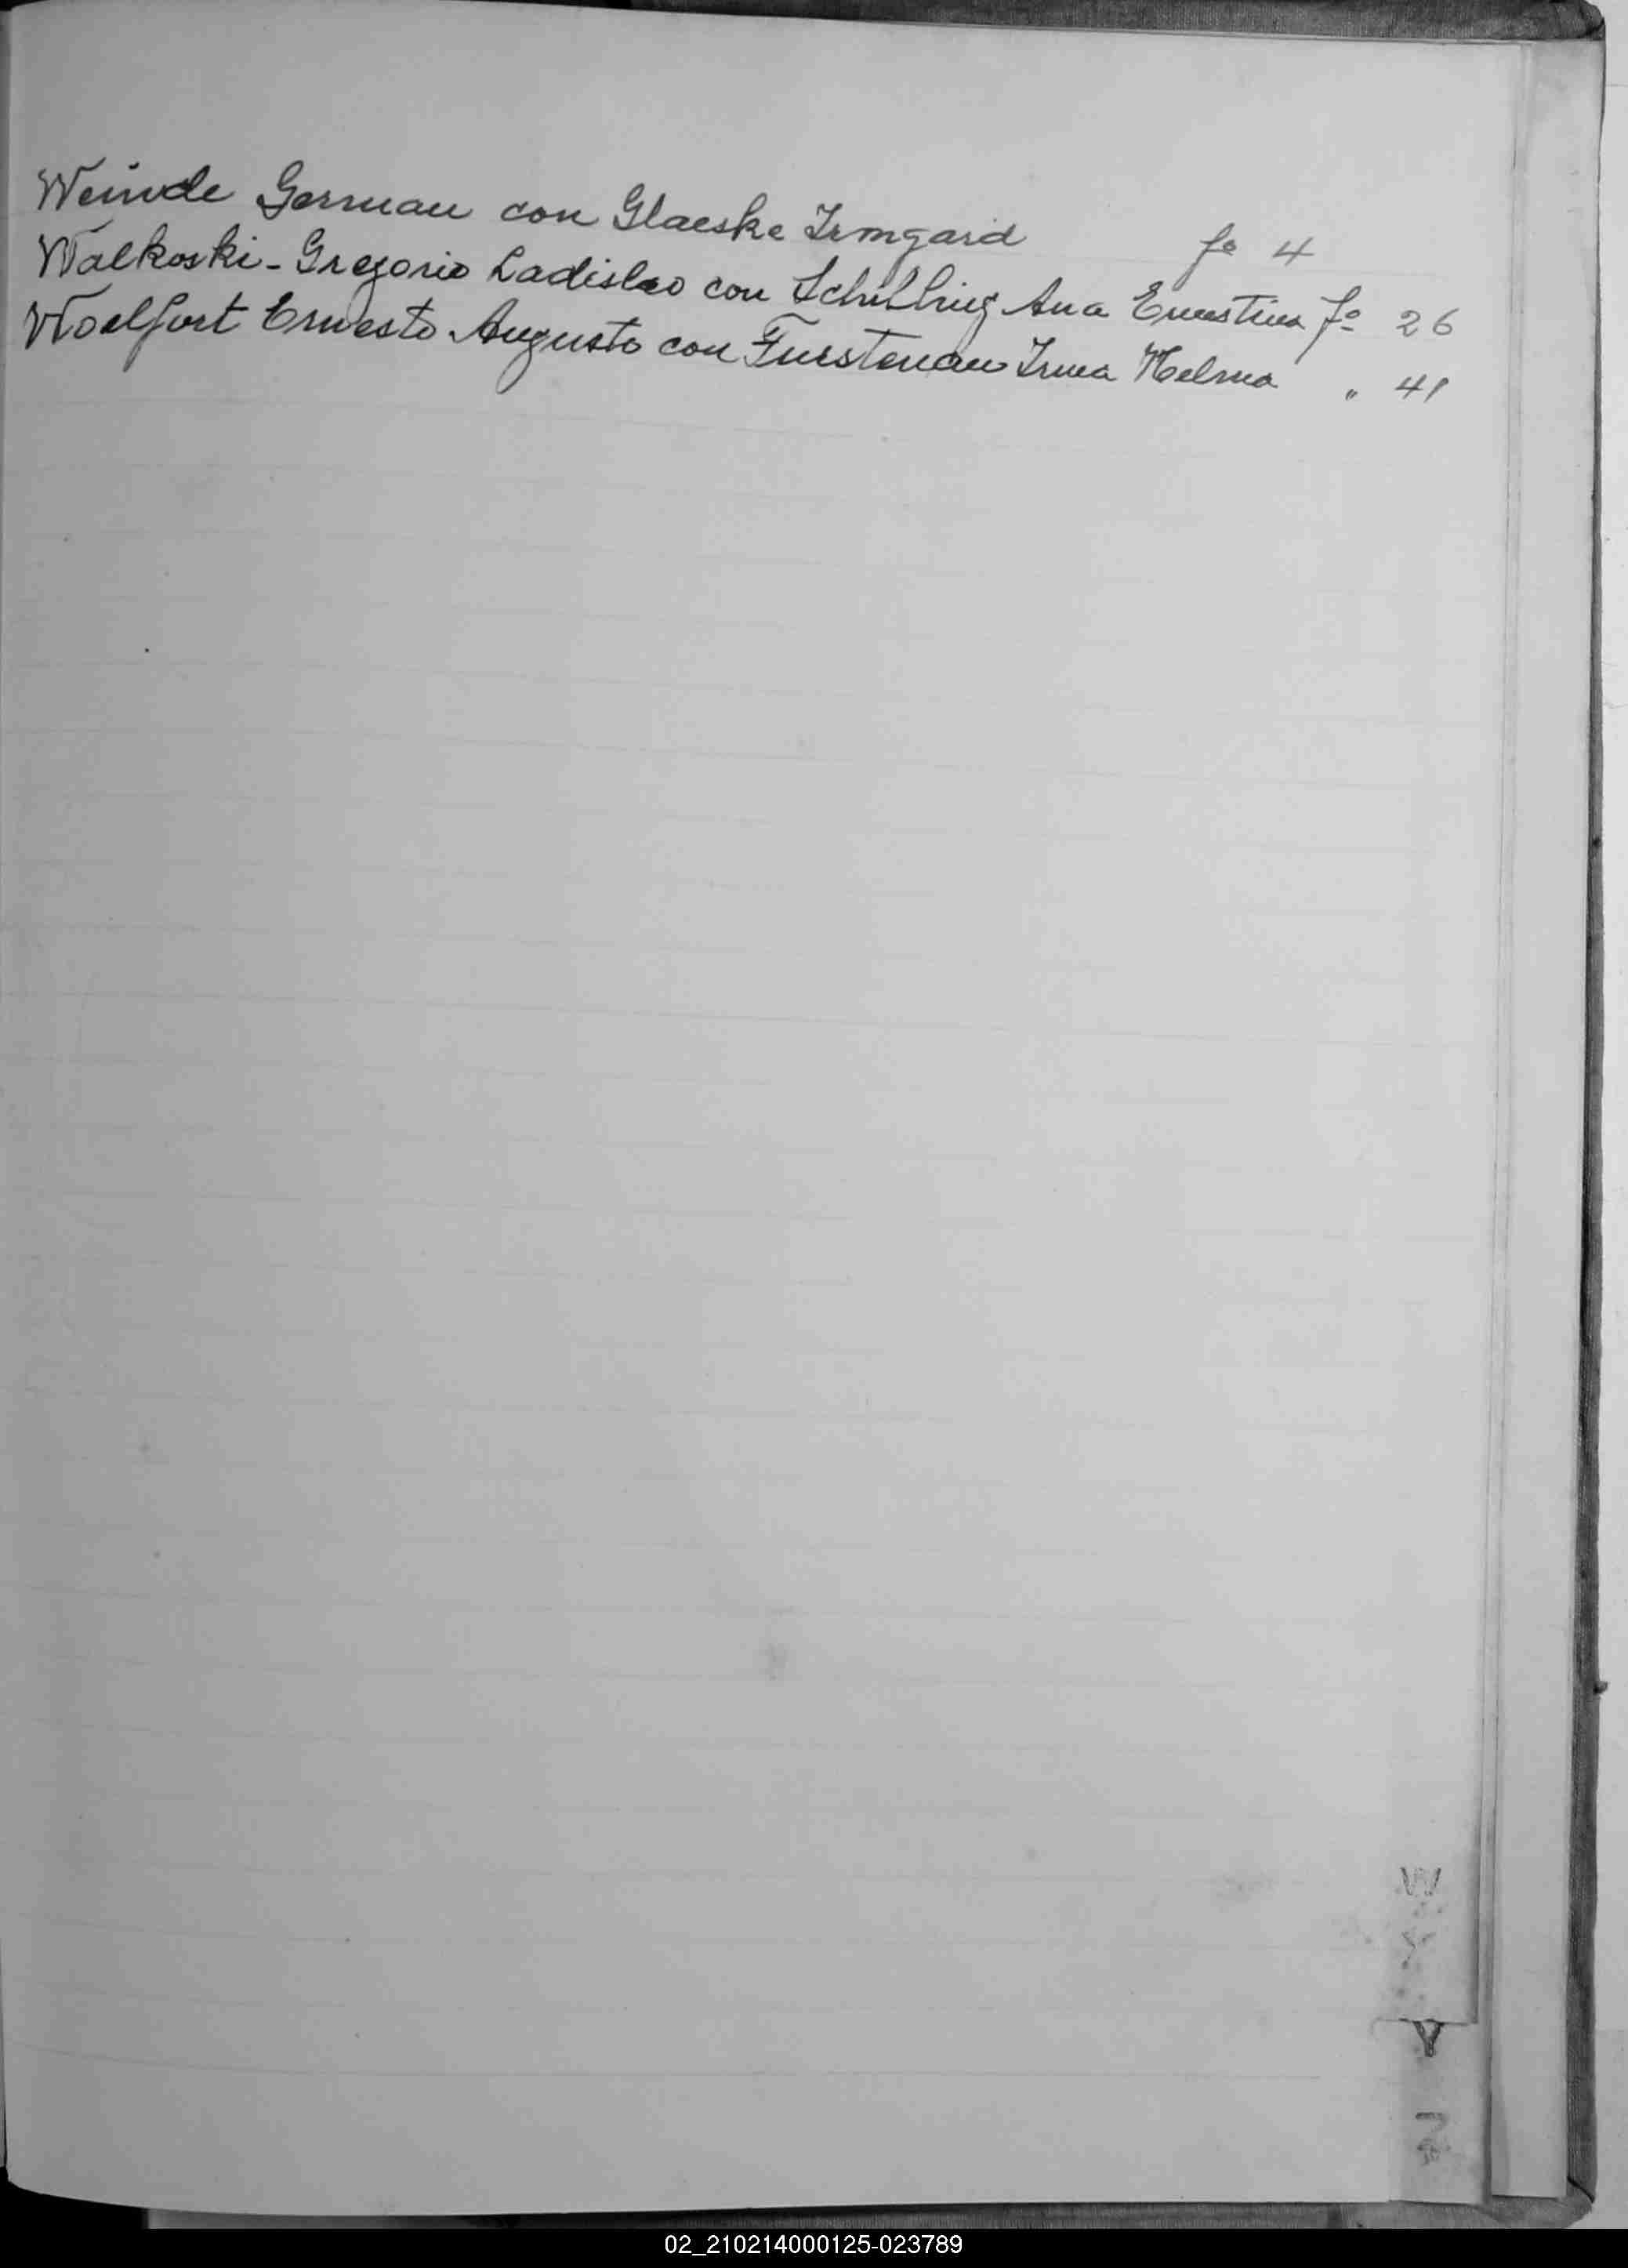 Weinde German con Glaeske Irmgard fº 4
Walkoski - Gregorio Ladislao con Schilling Ana Ernestina fº 26
Woelfort Ernesto Augusto con Fuerstenau Irma Helma " 41
W
Y
Z
02_210214000125-023789